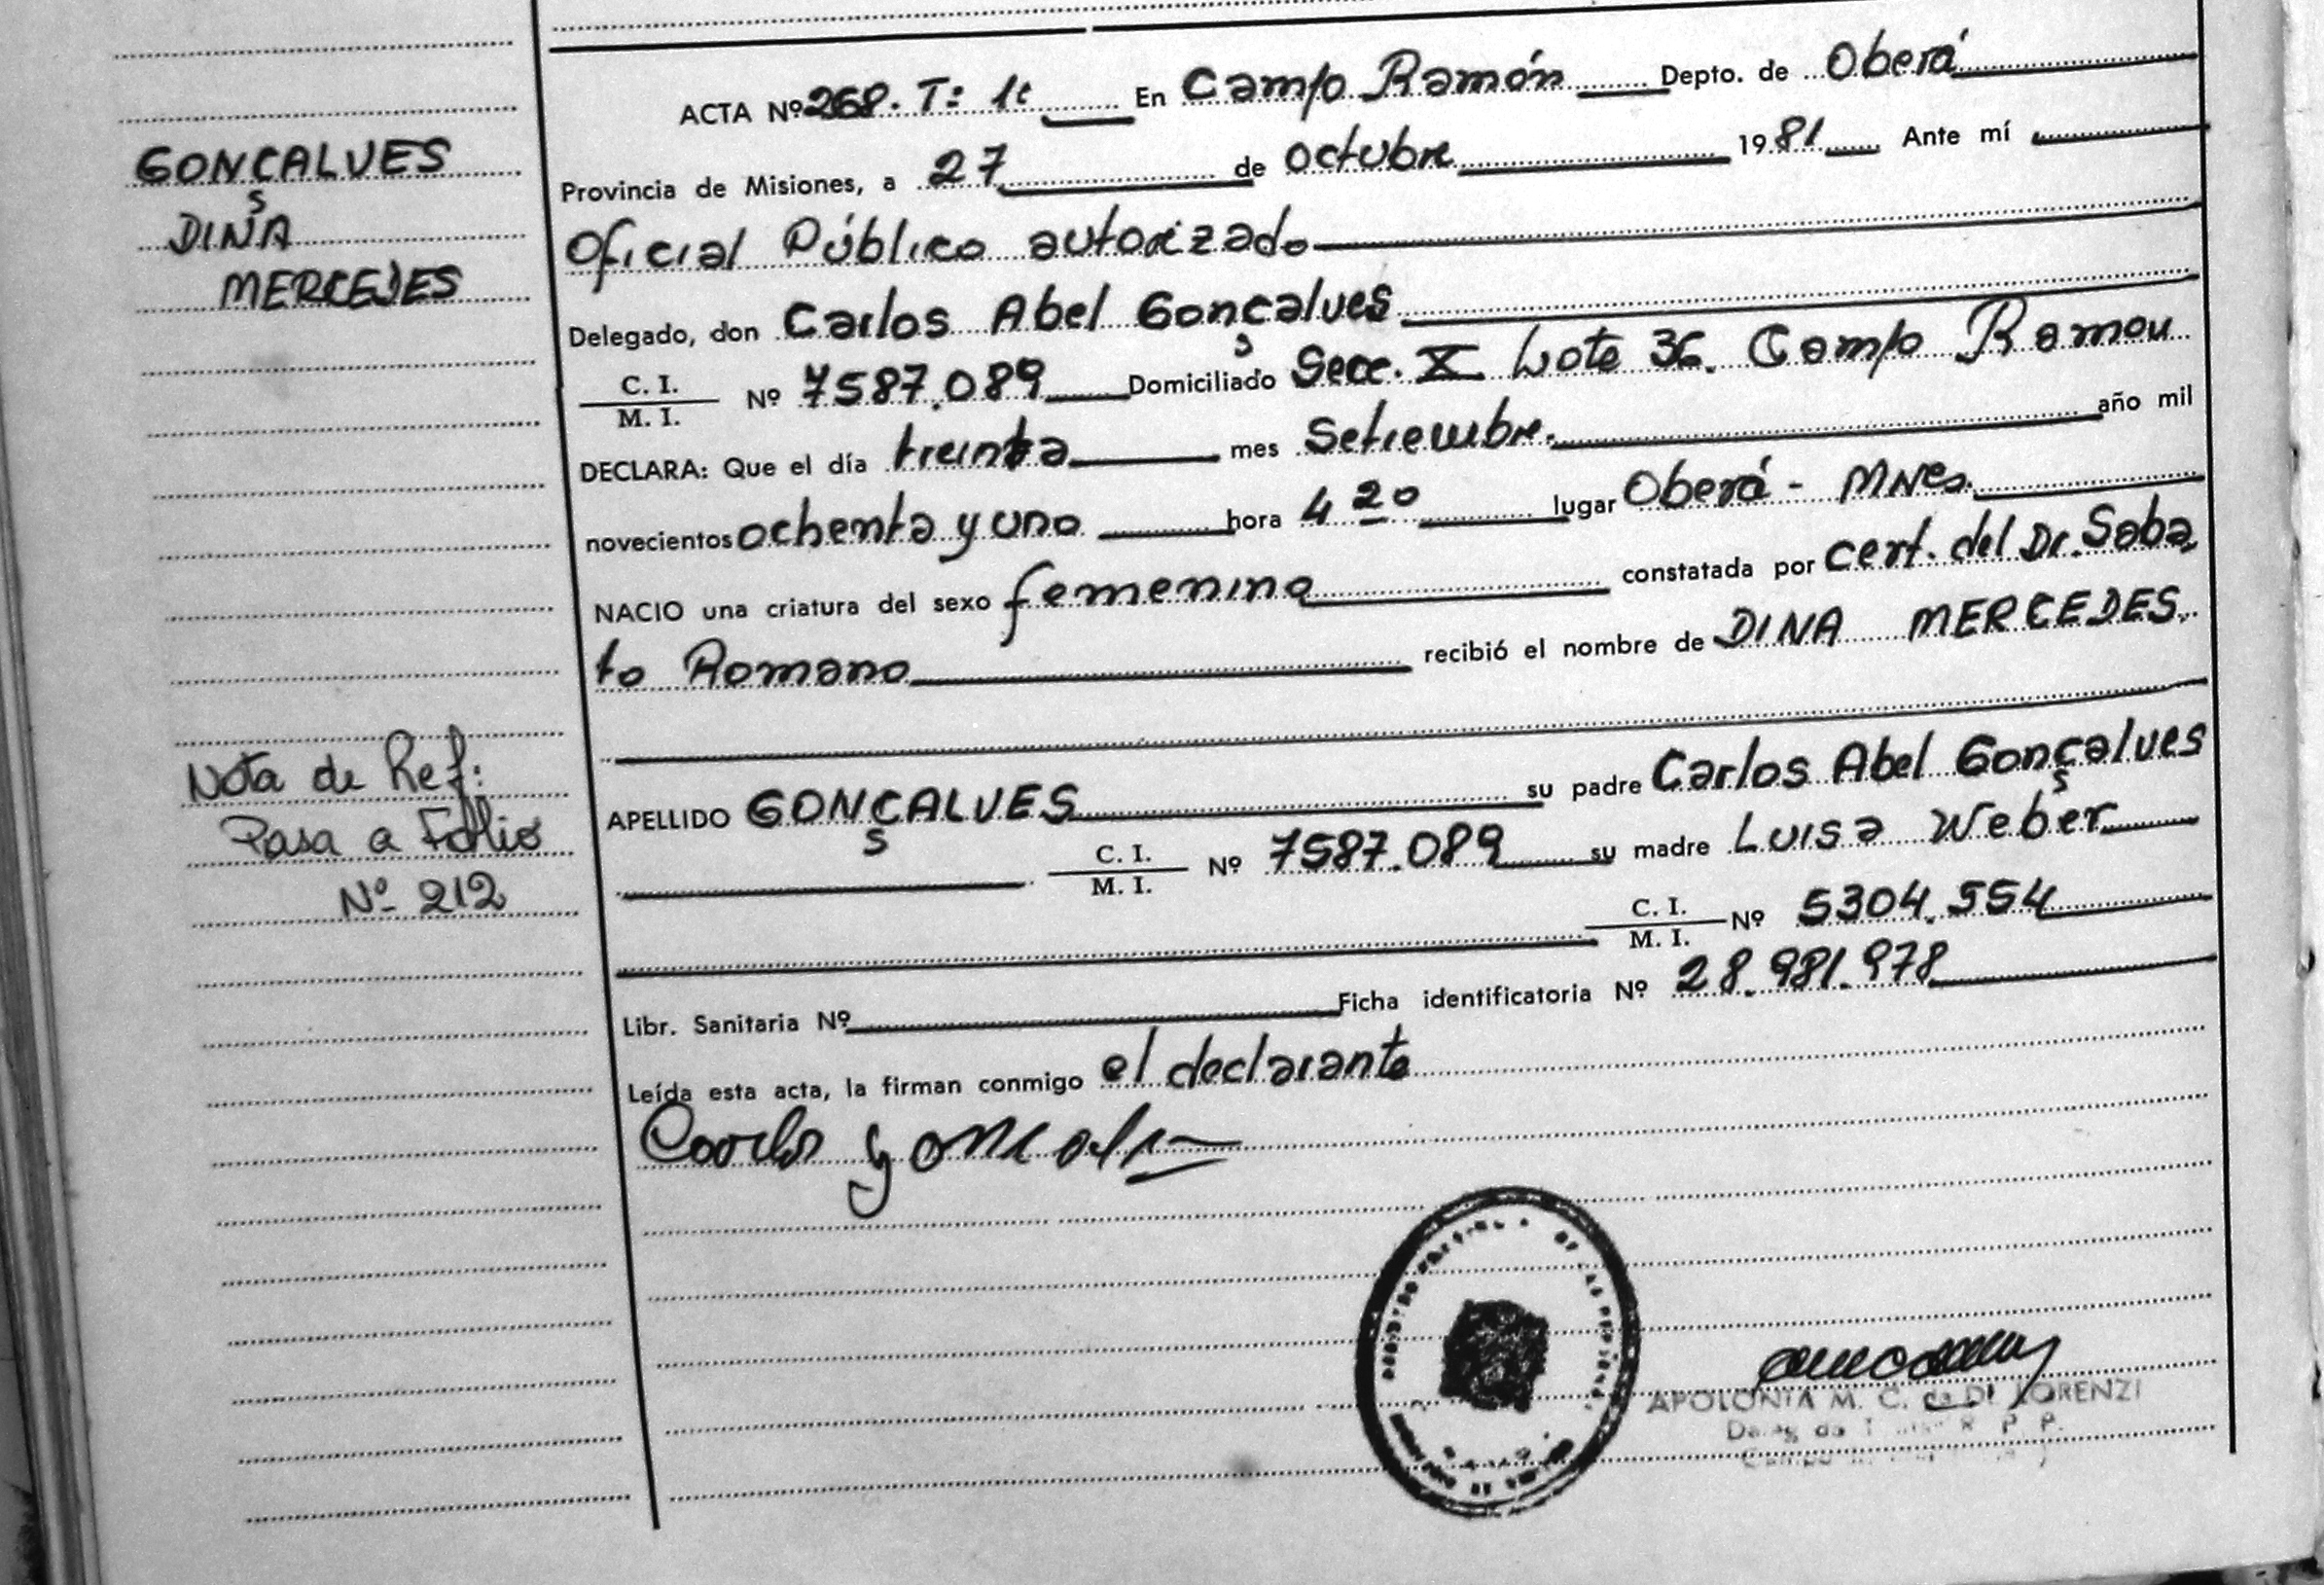 GONÇALVES
DINA
MERCEDES
Nota de Ref:
Pasa a Folio
Nº 212
ACTA Nº 268. T: 1º En Campo Ramón Depto. de Oberá
Provincia de Misiones, a 27 de octubre 1981 Ante mí
Oficial Público autorizado
Delegado, don Carlos Abel Gonçalves
C. I.
M. I. Nº 7587.089 Domiciliado Secc. X Lote 36. Campo Ramon
DECLARA: Que el día treinta mes Setiembre. año mil
novecientos ochenta y uno hora 4 20 lugar Oberá - Mnes.
NACIO una criatura del sexo femenino constatada por cert. del Dr. Saba
to Romano recibió el nombre de DINA MERCEDES.
APELLIDO GONÇALVES su padre Carlos Abel Gonçalves
C. I.
M. I. Nº 7587.089 su madre Luisa Weber
C. I.
M. I. Nº 5304.554
Libr. Sanitaria Nº Ficha identificatoria Nº 28.981.978
Leída esta acta, la firman conmigo el declarante
APOLONIA M. C. de DI LORENZI